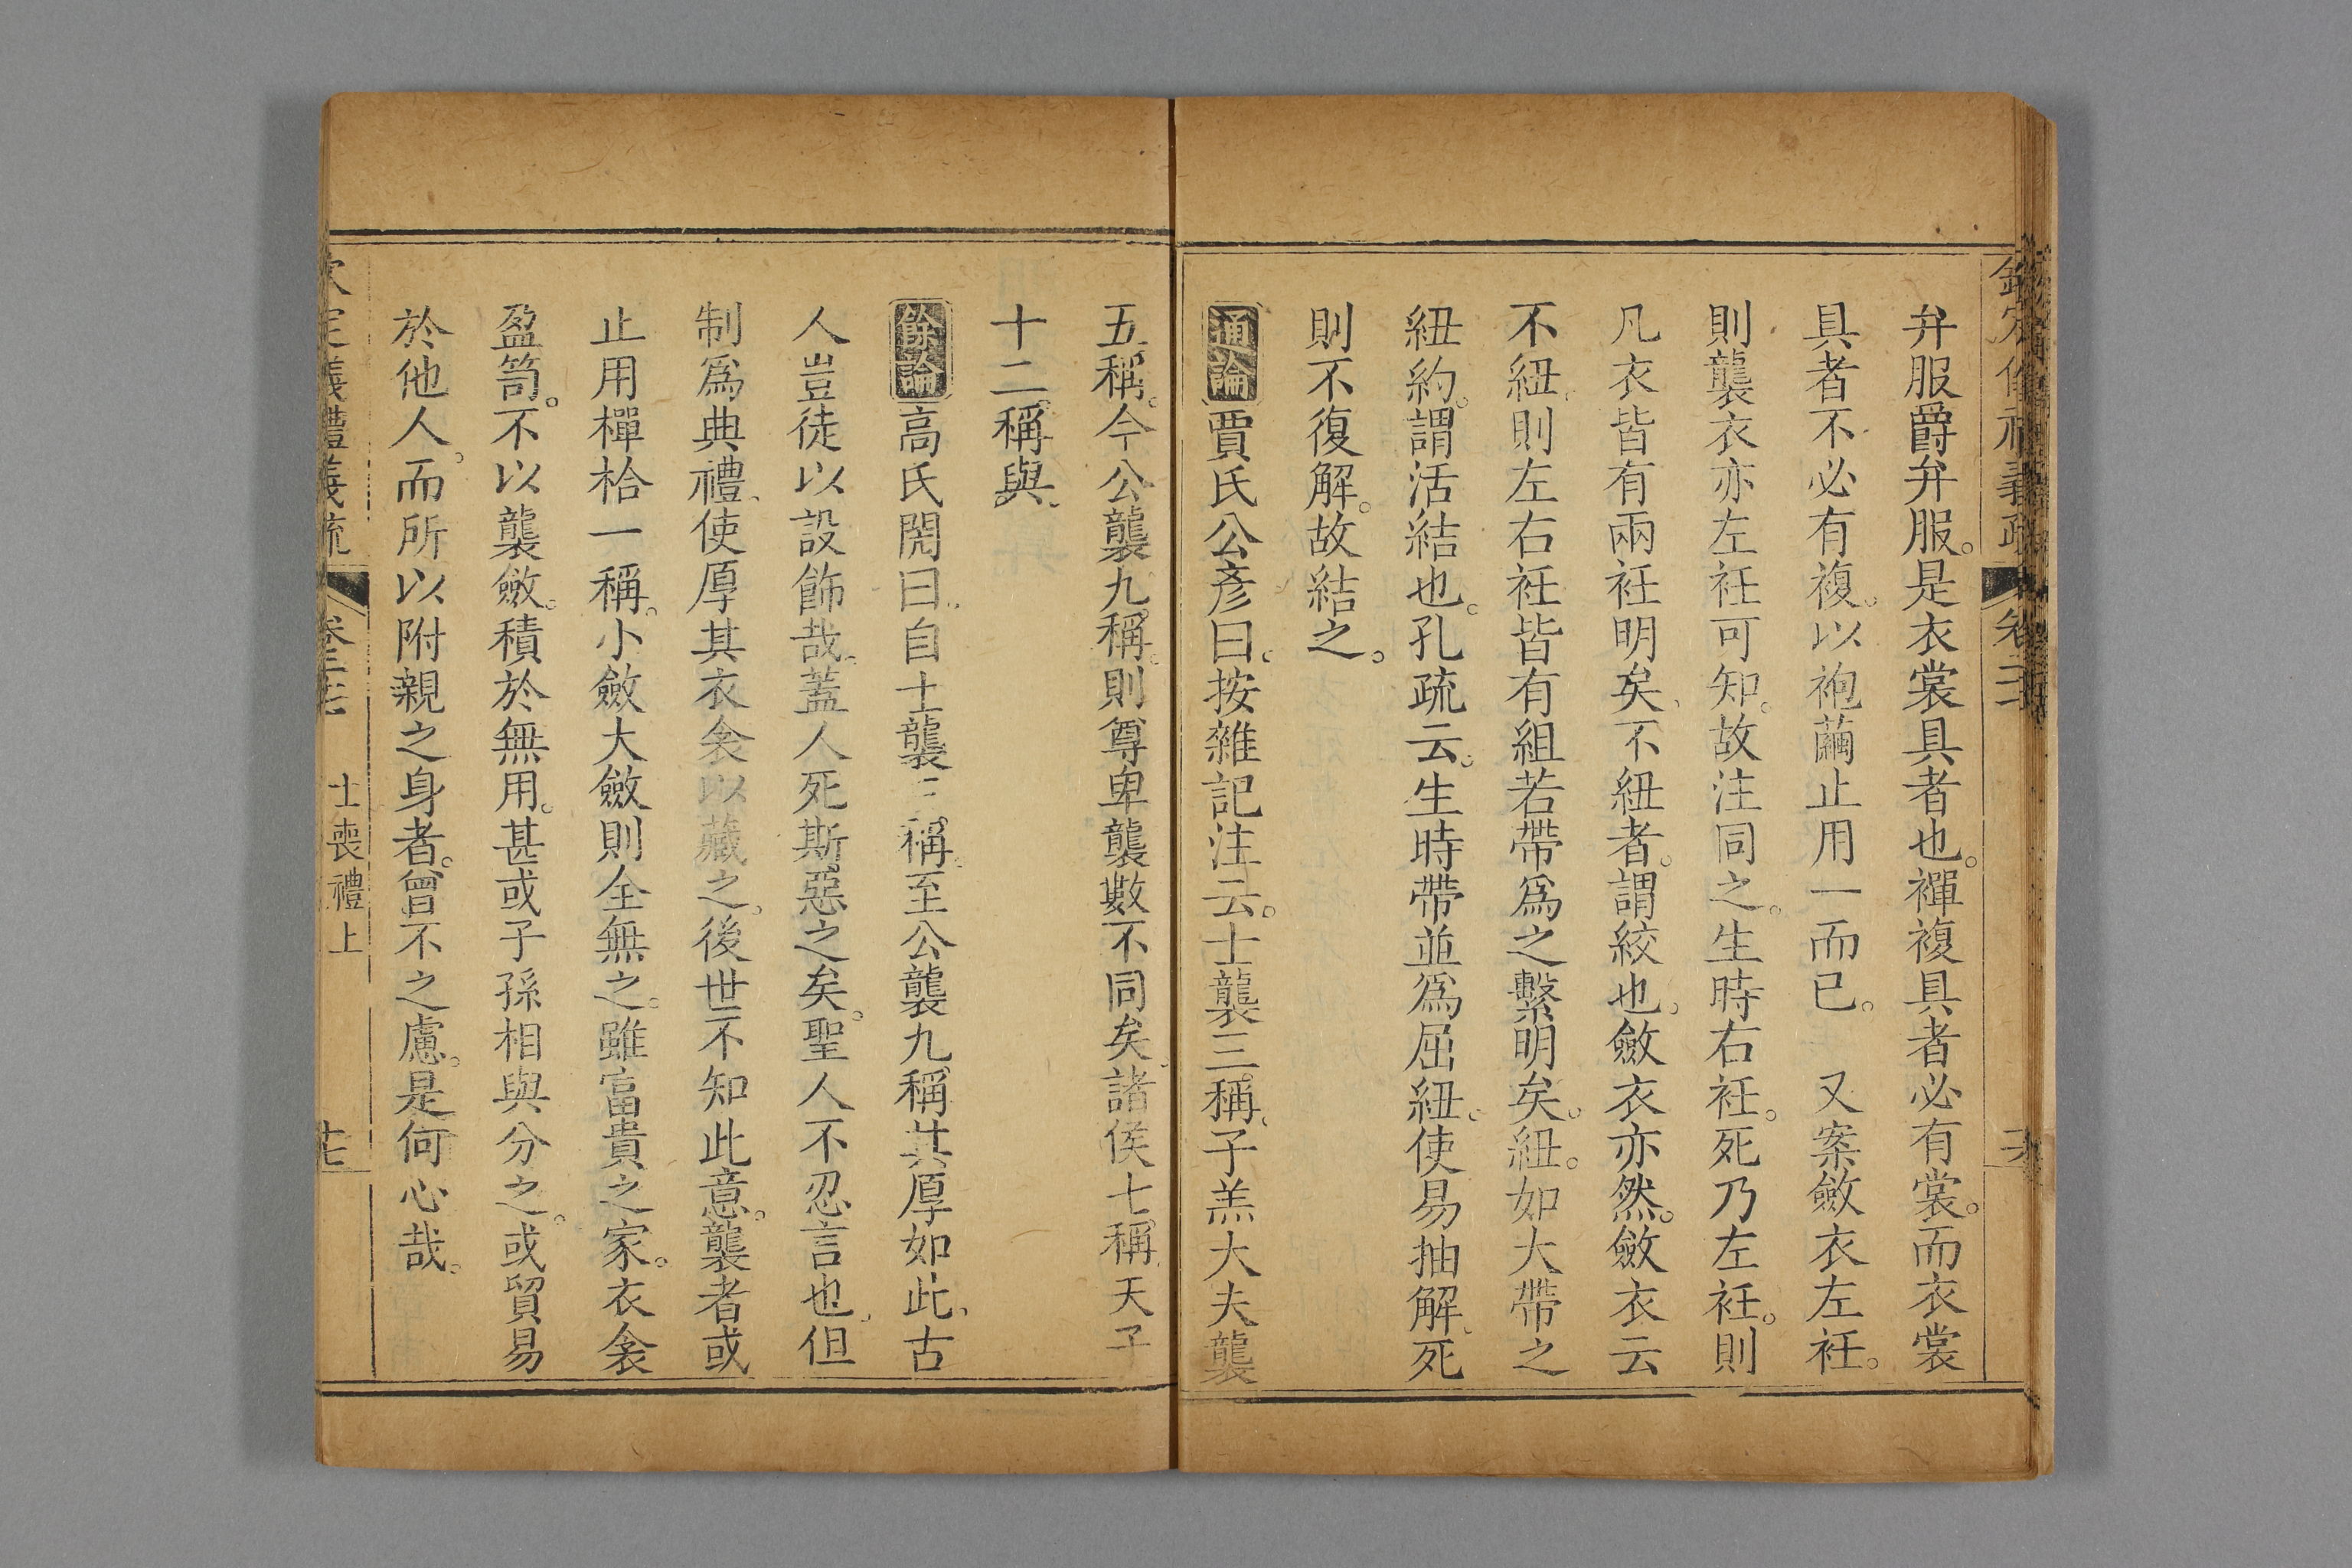 弁服爵弁服。是衣裳具者也。襌複具者必有裳。而衣裳
具者不必有複。以袍繭止用一而已。　又案斂衣左衽。
則襲衣亦左衽可知。故注同之。生時右衽。死乃左衽。則
凡衣皆有兩衽明矣、不紐者。謂絞也。斂衣亦然。斂衣云
不紐、則左右衽皆有組若帶爲之繫明矣。紐。如大帶之
紐約。謂活結也。孔疏云。生時帶並爲屈紐。使易抽解、死
則不復解。故結之。
通論賈氏公彥曰。按雜記注云。士襲三稱、子羔大夫襲
五稱。今公襲九稱。則尊卑襲數不同矣、諸侯七稱、天子
十二稱與、
餘論高氏閌曰、自士襲三稱、至公襲九稱、其厚如此、古
人豈徒以設飾哉。蓋人死斯惡之矣。聖人不忍言也、但
制爲典禮、使厚其衣衾以藏之。後世不知此意。襲者或
止用襌袷一稱。小斂大斂則全無之。雖富貴之家。衣衾
盈笥。不以襲斂。積於無用。甚或子孫相與分之。或貿易
於他人。而所以附親之身者。曾不之慮。是何心哉。
欽定儀禮義疏
士喪禮上